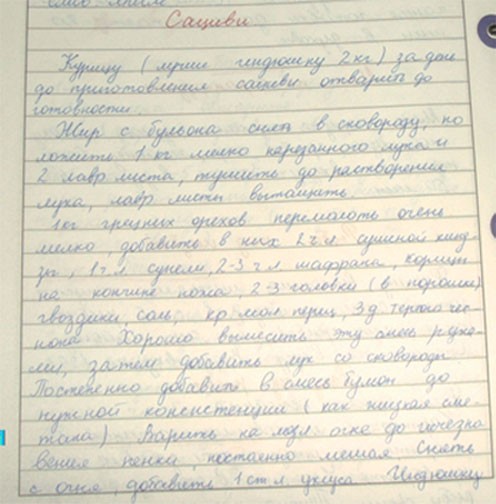 Сациви
Курицу (лучше индюшку 2 кг) за день
до приготовления сациви отварить до
готовности.
Жир с бульона снять в сковороду, по
ложить 1 кг мелко нарезанного лука и
2 лавр листа, тушить до растворения
лука, лавр листы вытащить.
1кг грецких орехов перемолоть очень
мелко, добавить в них 2 ч л сушеной кинд-
зы, 1 ч л сунели, 2-3 ч л шафрана, корицы
на кончике ножа, 2-3 головки (в порошке)
гвоздики, соль, кр мол перец, 3 д. тертого чес-
нока. Хорошо вымесить эту смесь рука-
ми, затем добавить лук со сковороды
Постепенно добавить в смесь бульон до
нужной консистенции (как жидкая сме-
тана) Варить на медл огне до исчезно
вения пенки, постоянно мешая Снять
с огня, добавить 1 ст л уксуса Индюшку